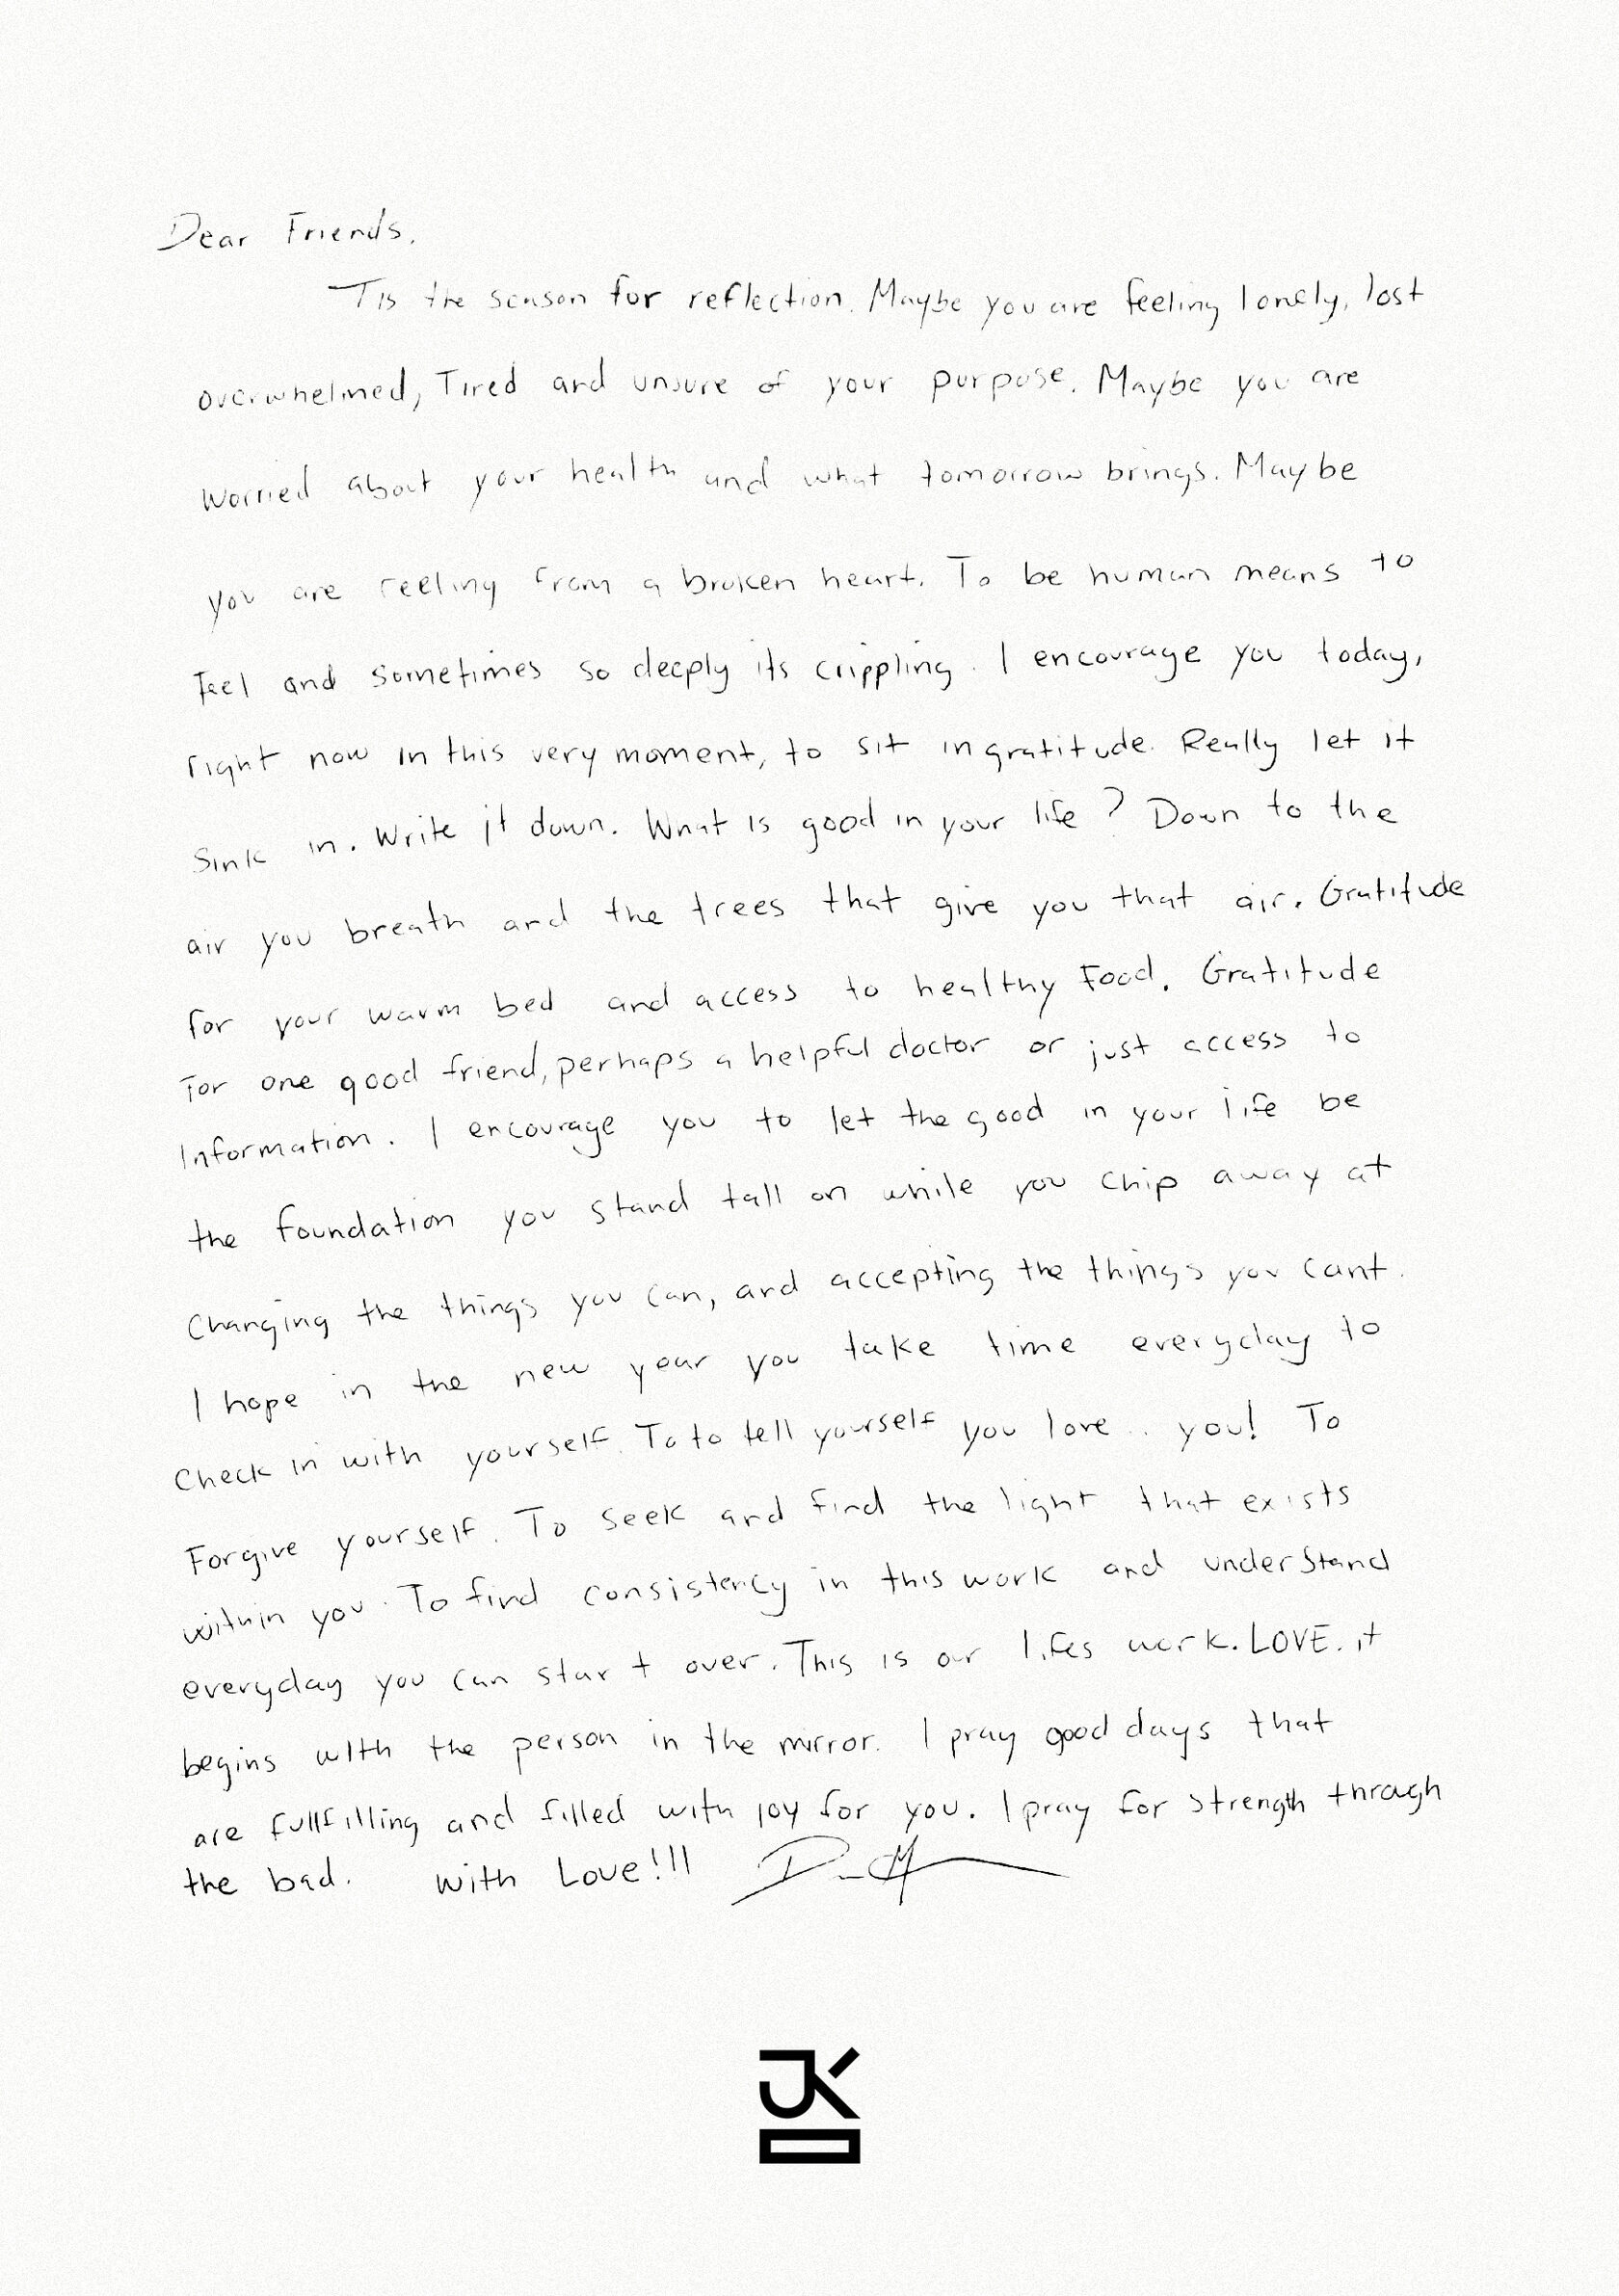 Dear Friends,
Tis the season for reflection. Maybe you are feeling lonely, lost
overwhelmed, Tired and unsure of your purpose. Maybe you are
worried about your health and what tomorrow brings. Maybe
you are reeling from a broken heart. To be human means to
feel and sometimes so deeply its crippling. I encourage you today,
right now in this very moment, to sit in gratitude. Really let it
sink in. Write it down. What is good in your life? Down to the
air you breath and the trees that give you that air. Gratitude
for your warm bed and access to healthy Food. Gratitude
for one good friend, perhaps a helpful doctor or just access to
Information. I encourage you to let the good in your life be
the foundation you stand tall on while you chip away at
Changing the things you can, and accepting the things you cant.
I hope in the new year you take time everyday to
Check in with yourself. To to tell yourself you love .. you! To
Forgive yourself. To seek and find the light that exists
within you. To find consistency in this work and understand
everyday you can start over. This is our lifes work. LOVE. it
begins with the person in the mirror. I pray good days that
are fullfilling and filled with joy for you. I pray for strength through
the bad. With Love!!!
JK